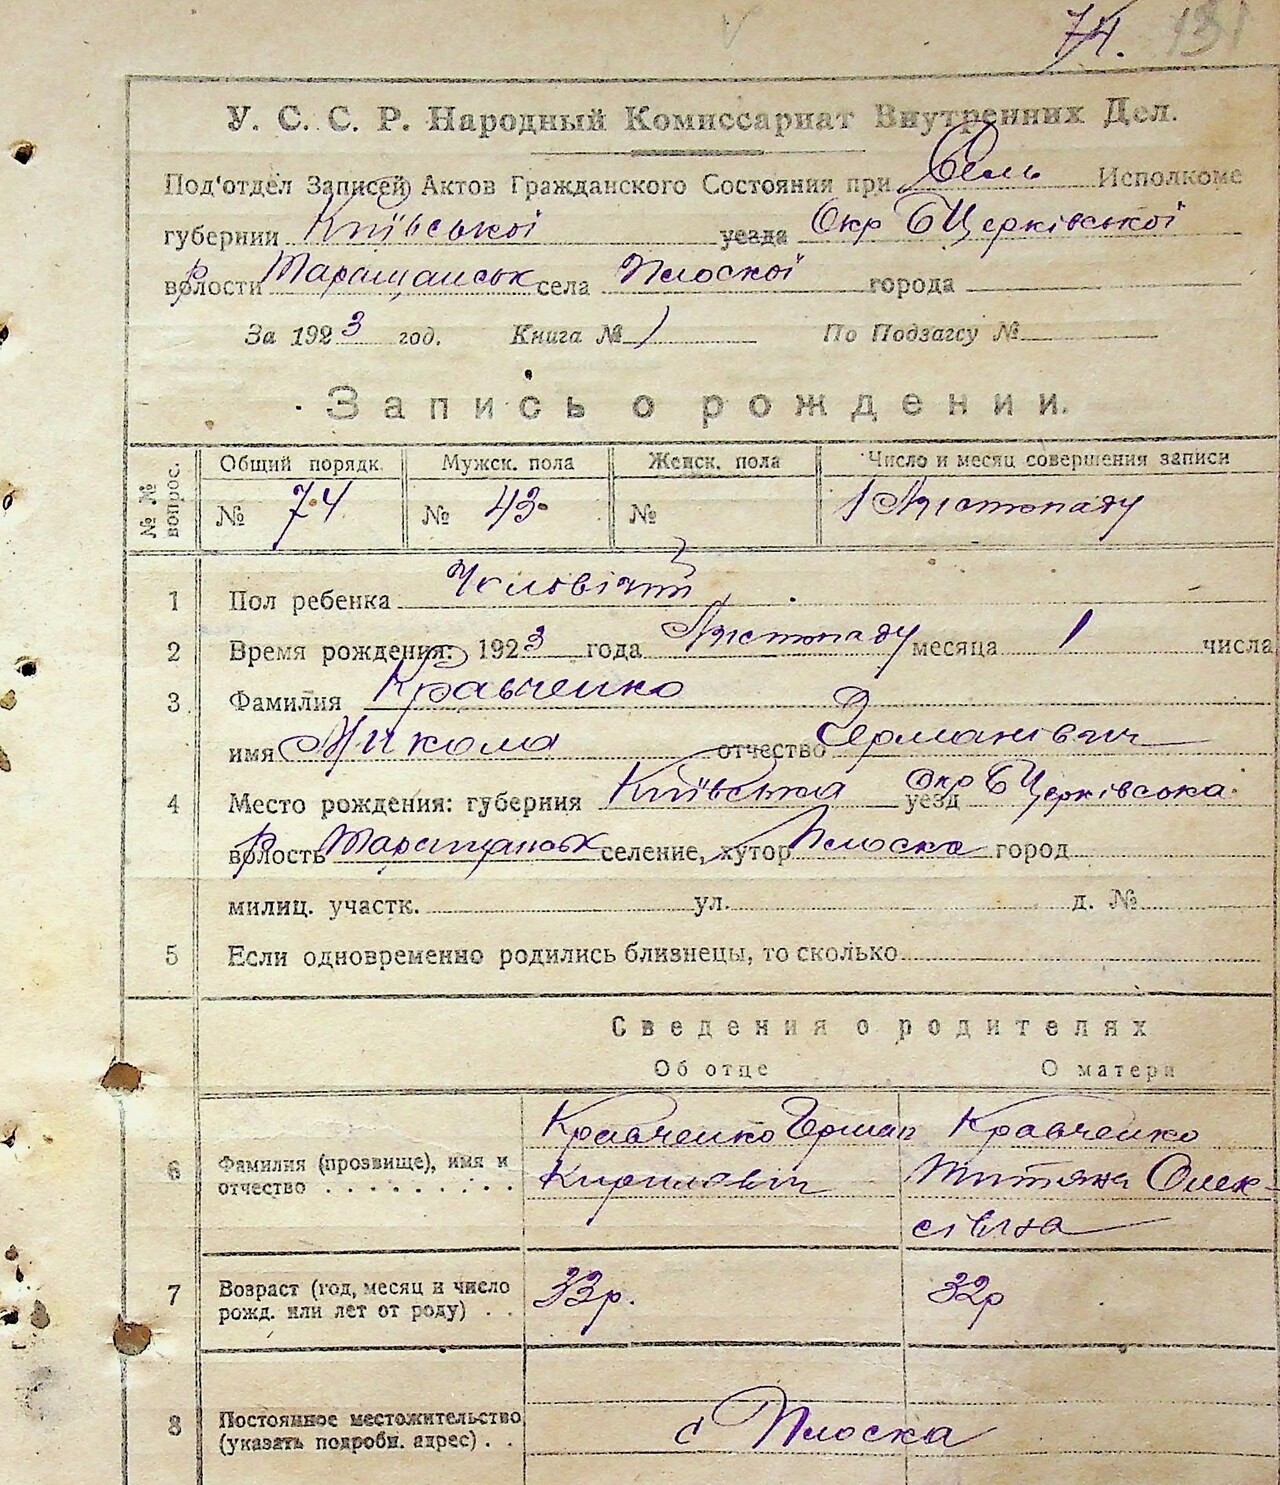 74. 131
У. С. С. Р. Народный Комиссариат Внутренних Дел.
Под'отдел Записей Актов Гражданского Состояния при Сель Исполкоме
губернии Київської уезда Окр БЦерківської
волости р Таращанськ села Плоскої города
За 1923 год. Книга № 1 По Подзагсу №
Запись о рождении.
№ № вопрос. Общий порядк. Мужск. пола Женск. пола Число и месяц совершения записи
№ 74 № 43 № 1 Листопаду
1 Пол ребенка Чоловічий
2 Время рождения: 1923 года Листопаду месяца 1 числа
3 Фамилия Кравченко
имя Микола отчество Германович
4 Место рождения: губерния Київська уезд Окр БЦерківська
волость р Таращанськ селение, хутор Плоска город
милиц. участк. ул. д. №
5 Если одновременно родились близнецы, то сколько
Сведения о родителях
Об отце О матери
Кравченко Герман Кравченко
6 Фамилия (прозвище), имя и отчество Кирилович Титяна Олек-
сіівна
7 Возраст (год, месяц и число рожд. или лет от роду) 33р. 32р
8 Постоянное местожительство (указать подробн. адрес) с Плоска